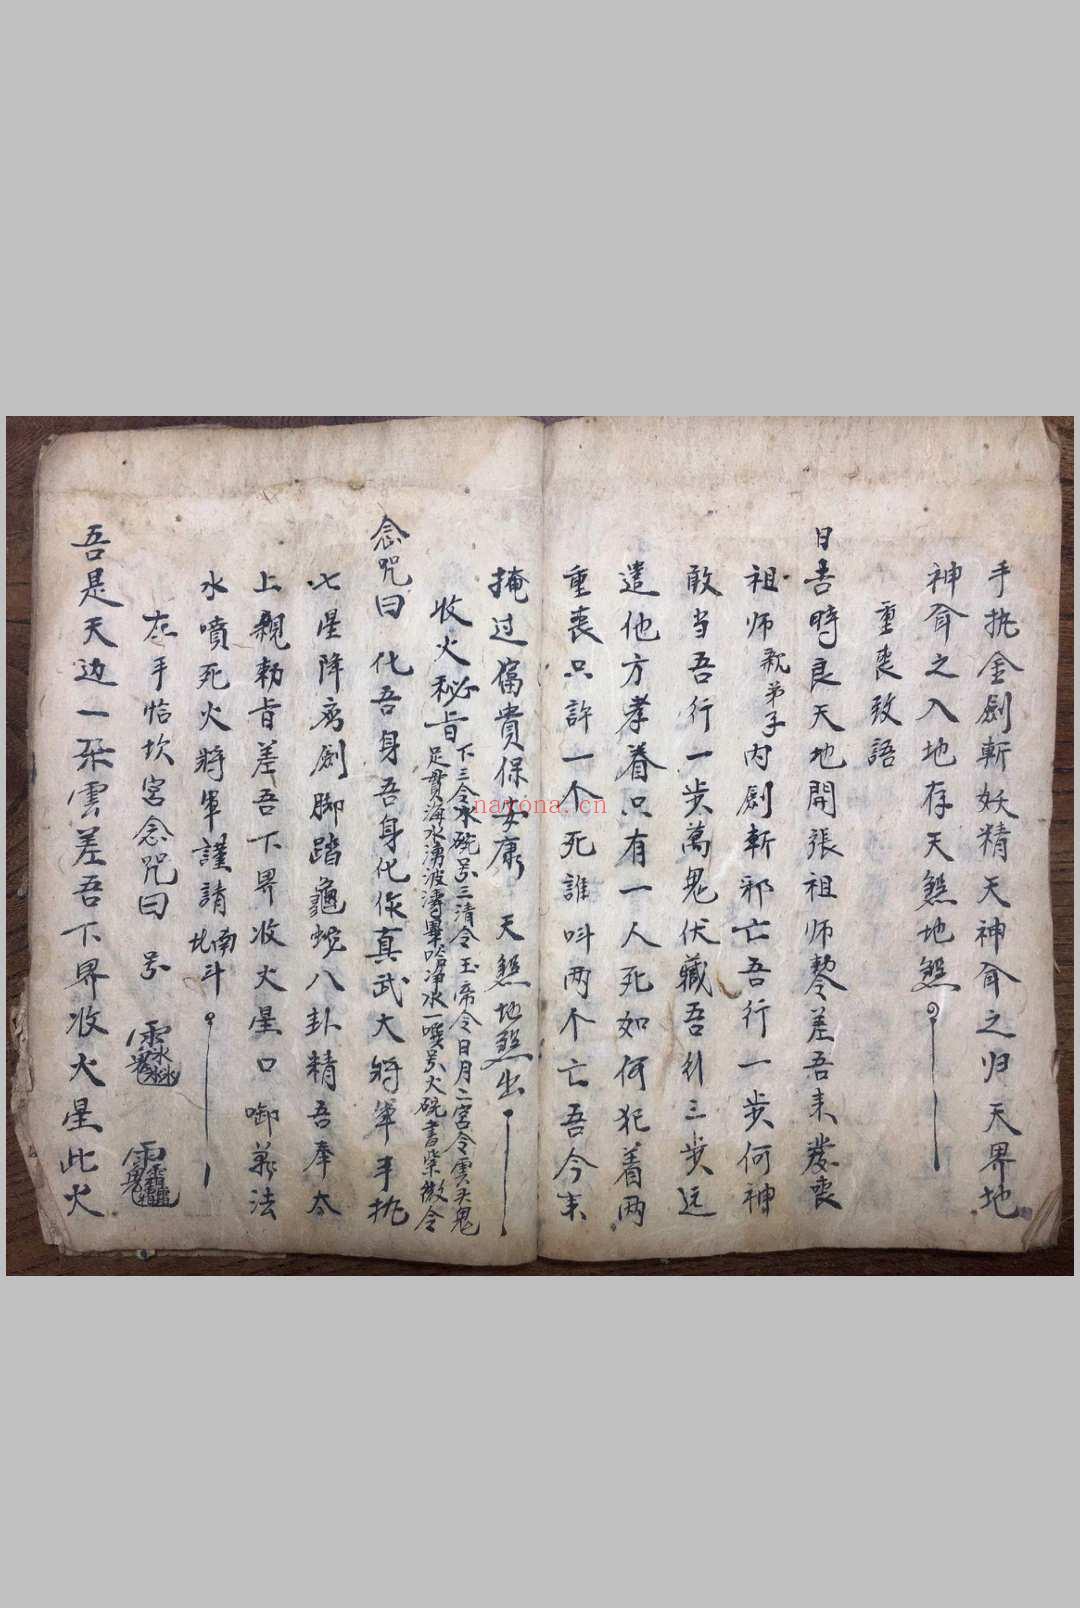 手执金劍斬妖精天神肏之归天界地
神肏之入地存天煞地煞
重喪致語
日吉時良天地開張祖师勑差吾来發喪
祖师 弟子内劍斬邪亡吾行一步何神
敢当吾行一步萬鬼伏藏吾行三步远
遣他方孝眷只有一人死如何犯着两
重喪只許一个死誰叫两个亡吾今来
掩过富貴保安康 天煞地煞出
收火秘旨
下三令水碗号三清令玉帝令日月二宮令雲天鬼
足貫海水湧波濤畢吟净水一噀号火碗書紫微令
念咒曰 化吾身吾身化作真武大將軍手执
七星降魔劍脚踏龜蛇八卦精吾奉太
上親勅旨差吾下界收火星口啣 法
水噴死火將軍謹請南北斗
左手恰坎宮念咒曰 号
吾是天边一朵雲差吾下界收火星此火
nayona.cn